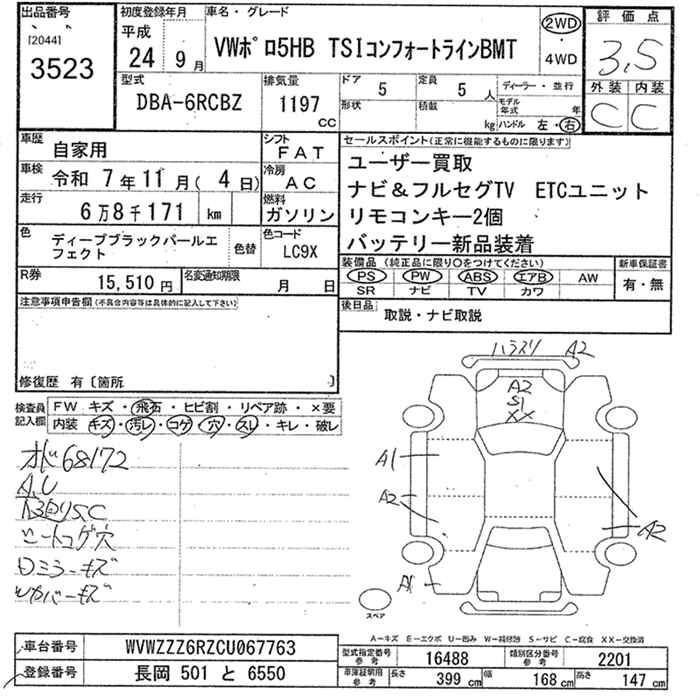 出品番号
[2044]
3523
初度登録年月
平成
24年9月
車名・グレード
VWポロ5HB TSIコンフォートラインBMT
2WD
・
4WD
評価点
3,5
外装 内装
C C
型式
DBA-6RCBZ
排気量
1197
cc
ドア
5
形状
定員
5
人
積載
kg
ディーラー・並行
モデル年式 年
ハンドル 左・右
車歴
自家用
シフト
FAT
車検
令和 7年11月( 4日)
冷房
AC
走行
6万8千171 km
燃料
ガソリン
色
ディープブラックパールエフェクト
色替
色コード
LC9X
R券
15,510円
名変通知期限
月 日
セールスポイント(正常に機能するものに限ります)
ユーザー買取
ナビ&フルセグTV ETCユニット
リモコンキー2個
バッテリー新品装着
装備品(純正品に限り○をつけてください)
PS PW ABS エアB AW
SR ナビ TV カワ
新車保証書
有・無
後日品
取説・ナビ取説
注意事項申告欄(不具合内容等は具体的に記入して下さい)
修復歴 有〔箇所 〕
検査員記入欄
FW キズ・飛石・ヒビ割・リペア跡・×要
内装 キズ・汚レ・コゲ・穴・スレ・キレ・破レ
オド68172
A,U
シートコゲ穴
ロミラーキズ
ハラスリ A2
A2
S1
XX
A1
A2
A2
A1
スペア
A-キズ E-エクボ U-凹み W-補修跡 S-サビ C-腐食 XX-交換済
車台番号
WVWZZZ6RZCU067763
登録番号
長岡 501 と 6550
型式指定番号
参考
16488
類別区分番号
参考
2201
車庫証明用
参考
長さ
399 cm
幅
168 cm
高さ
147 cm